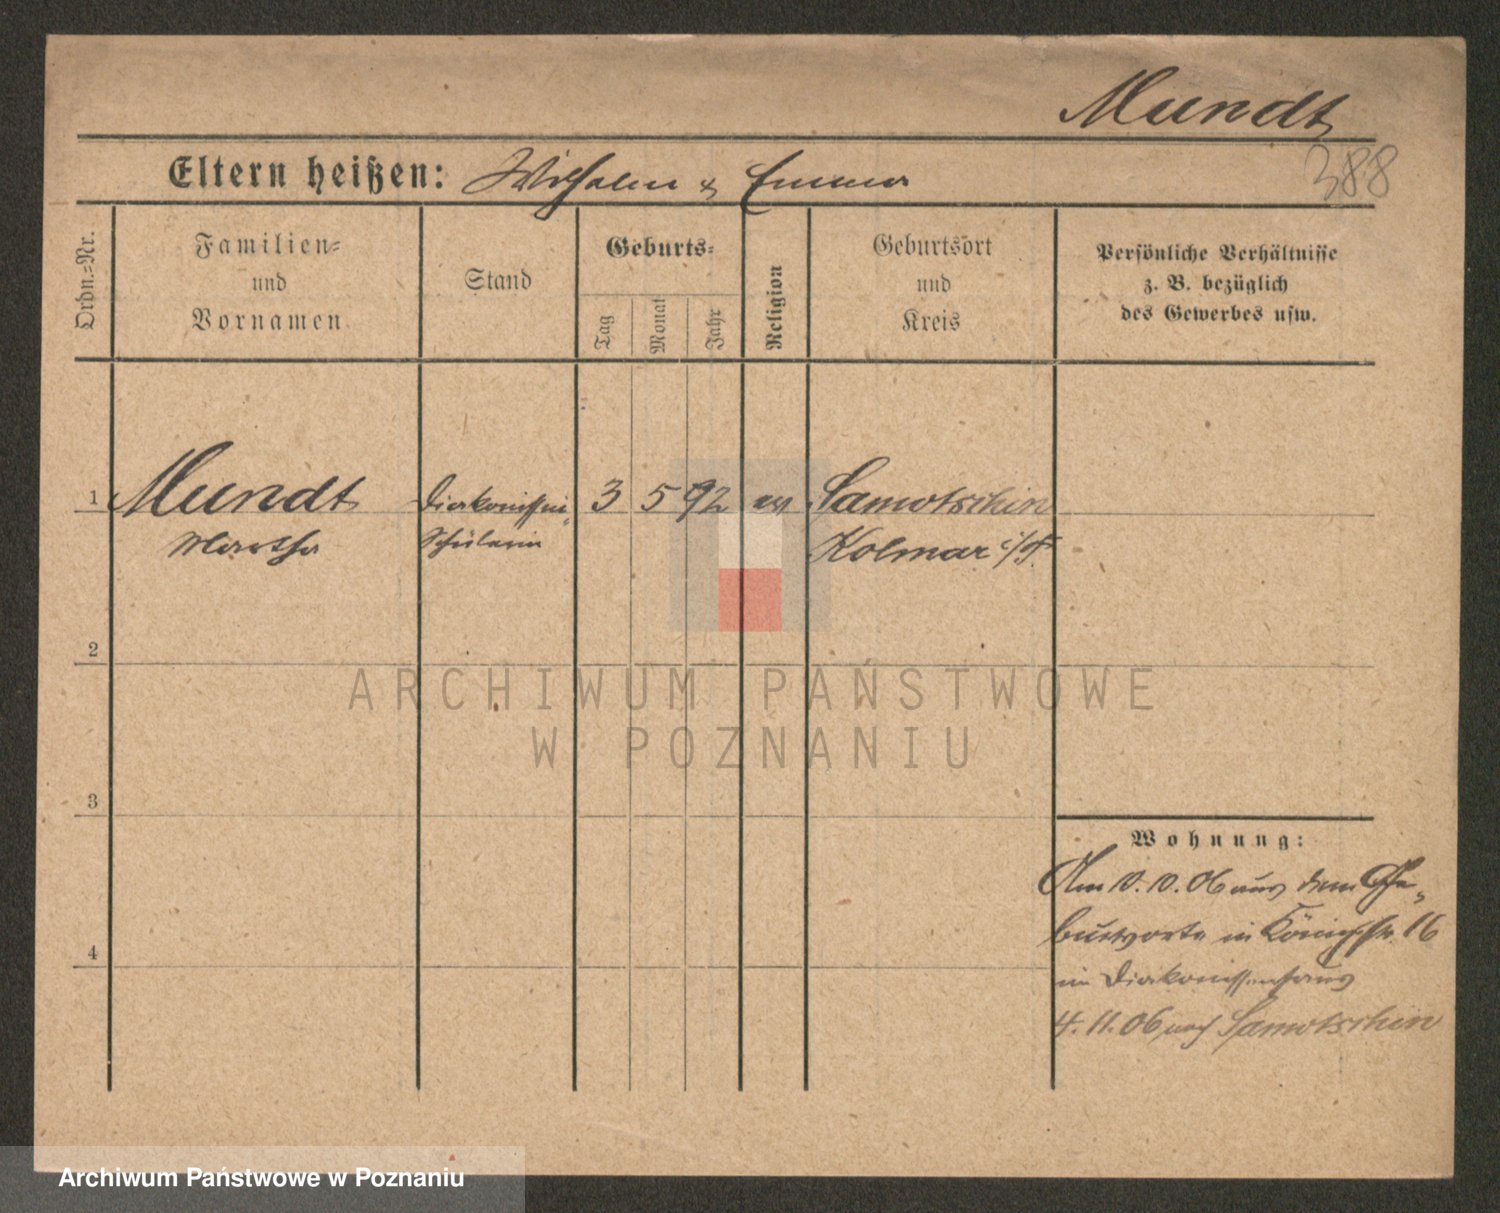 Mundt
388
Eltern heißen: Wilhelm & Emma
Ordn.=Nr.
Familien=
und
Vornamen
Stand
Geburts=
Tag
Monat
Jahr
Religion
Geburtsort
und
Kreis
Persönliche Verhältnisse
z. B. bezüglich
des Gewerbes usw.
1 Mundt Diakonissin= 3 5 92 ev Samotschin
Martha Schülerin Kolmar i/P.
2
ARCHIWUM PAŃSTWOWE
W POZNANIU
3
Wohnung:
Am 10.10.06 aus dem Ge=
burtsorte in Königstr. 16
im Diakonissenhaus
4
4.11.06 nach Samotschin
Archiwum Państwowe w Poznaniu